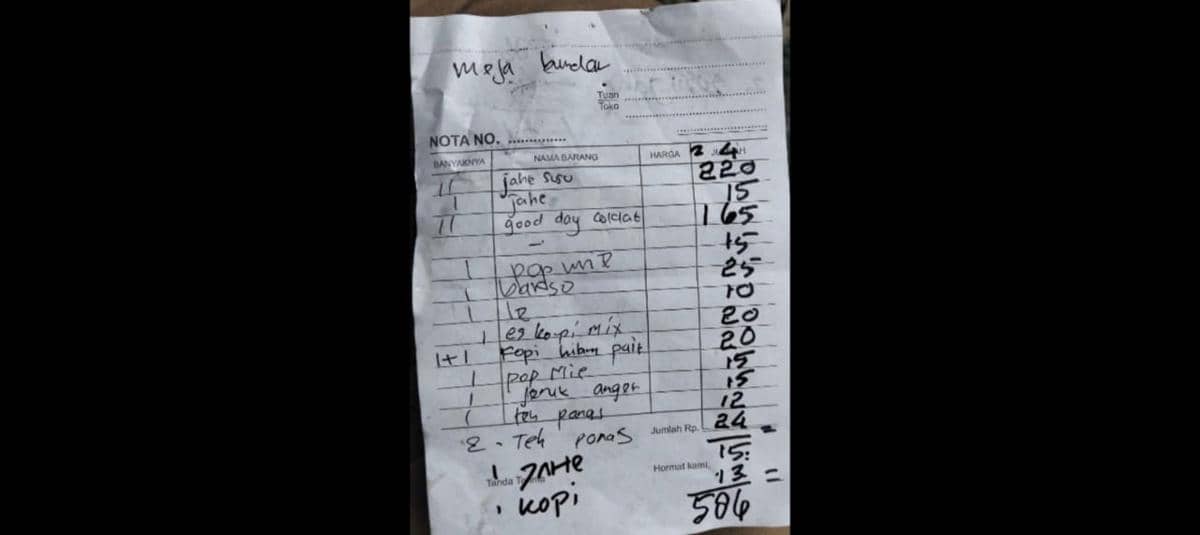 meja bundar
Tuan
Toko
NOTA NO. ...............
BANYAKNYA NAMA BARANG HARGA
11 jahe susu 220
1 jahe 15
11 good day Coklat 165
1 pop mie 15
1 bakso 25
1 10
1 es kopi mix 20
1+1 Kopi hitam pait 20
1 pop Mie 15
1 jeruk anget 15
1 teh panas 12
2 - Teh panas Jumlah Rp. 24 =
1 JAHE 15:
Tanda Hormat kami, 13 =
1 KOPI
586